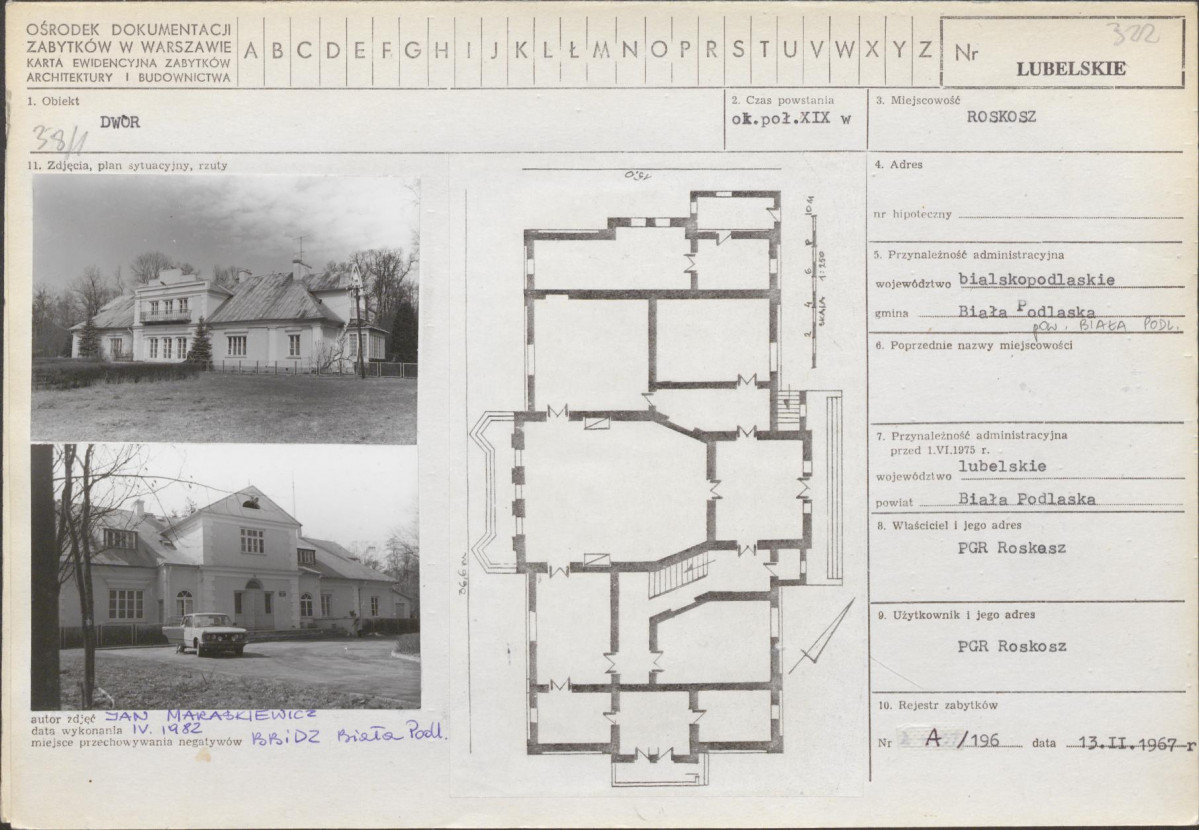 OŚRODEK DOKUMENTACJI
ZABYTKÓW W WARSZAWIE
KARTA EWIDENCYJNA ZABYTKÓW
ARCHITEKTURY I BUDOWNICTWA
A B C D E F G H I J K L Ł M N O P R S T U V W X Y Z
Nr
322
LUBELSKIE
1. Obiekt
DWÓR
38/1
2. Czas powstania
ok.poł.XIX w
3. Miejscowość
ROSKOSZ
11. Zdjęcia, plan sytuacyjny, rzuty
4. Adres
nr hipoteczny
5. Przynależność administracyjna
województwo bialskopodlaskie
gmina Biała Podlaska
pow. BIAŁA PODL.
6. Poprzednie nazwy miejscowości
7. Przynależność administracyjna
przed 1.VI.1975 r.
województwo lubelskie
powiat Biała Podlaska
8. Właściciel i jego adres
PGR Roskosz
9. Użytkownik i jego adres
PGR Roskosz
10. Rejestr zabytków
Nr A/196 data 13.II.1967 r
2 4 6 8 10 M
SKALA 1:250
36,6 m
autor zdjęć JAN MARASKIEWICZ
data wykonania IV. 1982
miejsce przechowywania negatywów BBiDZ Biała Podl.